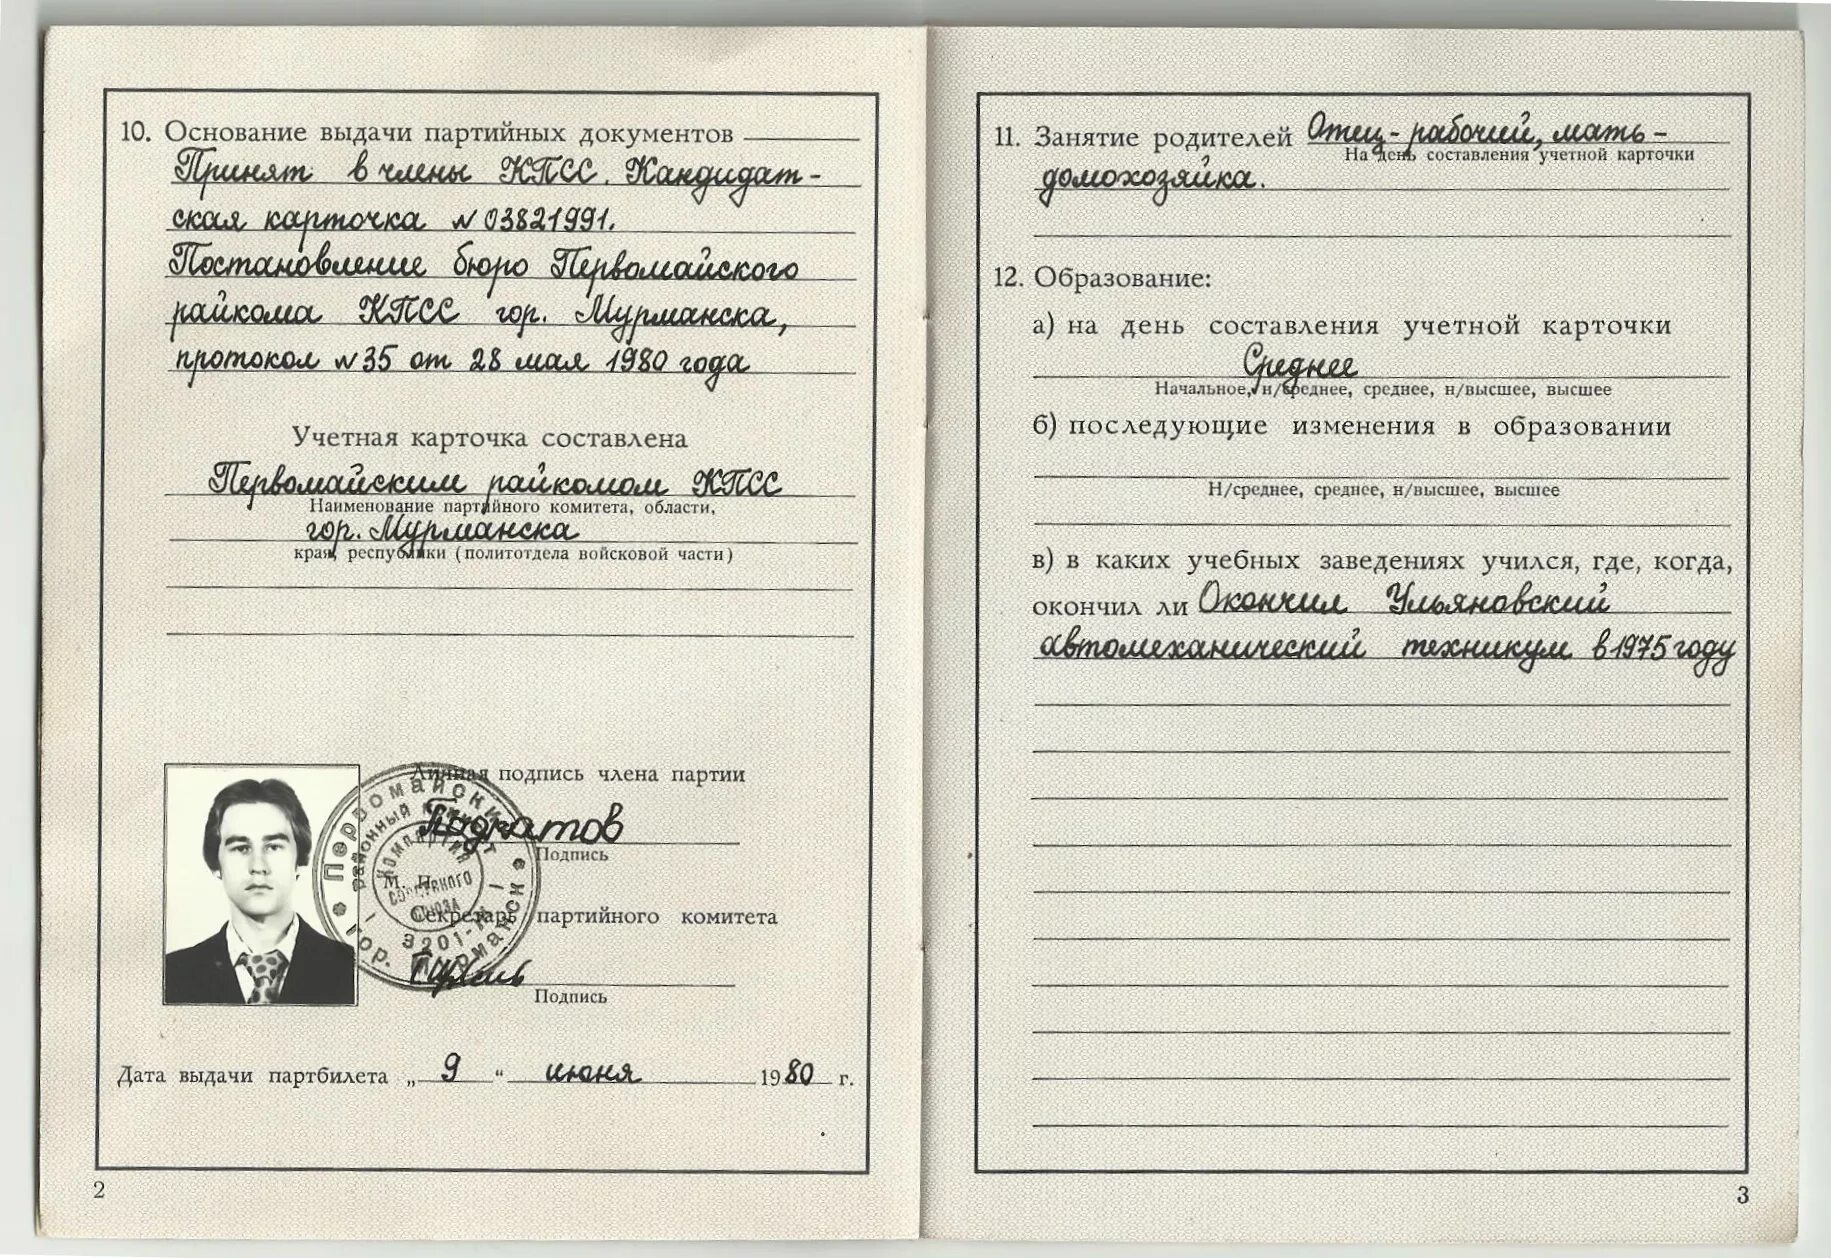 10. Основание выдачи партийных документов
Принят в члены КПСС. Кандидат-
ская карточка №03821991.
Постановление бюро Первомайского
райкома КПСС гор. Мурманска,
протокол №35 от 28 мая 1980 года
Учетная карточка составлена
Первомайским райкомом КПСС
Наименование партийного комитета, области,
гор. Мурманска
края, республики (политотдела войсковой части)
Личная подпись члена партии
Подпись
М. П.
Секретарь партийного комитета
Подпись
Первомайский
районный комитет
Компартия
Советского
Союза
3201-
гор. Мурманск
Дата выдачи партбилета „ 9 “ июня 1980 г.
2
11. Занятие родителей Отец-рабочий, мать-
На день составления учетной карточки
домохозяйка.
12. Образование:
а) на день составления учетной карточки
Среднее
Начальное, н/среднее, среднее, н/высшее, высшее
б) последующие изменения в образовании
Н/среднее, среднее, н/высшее, высшее
в) в каких учебных заведениях учился, где, когда,
окончил ли Окончил Ульяновский
автомеханический техникум в 1975 году
3